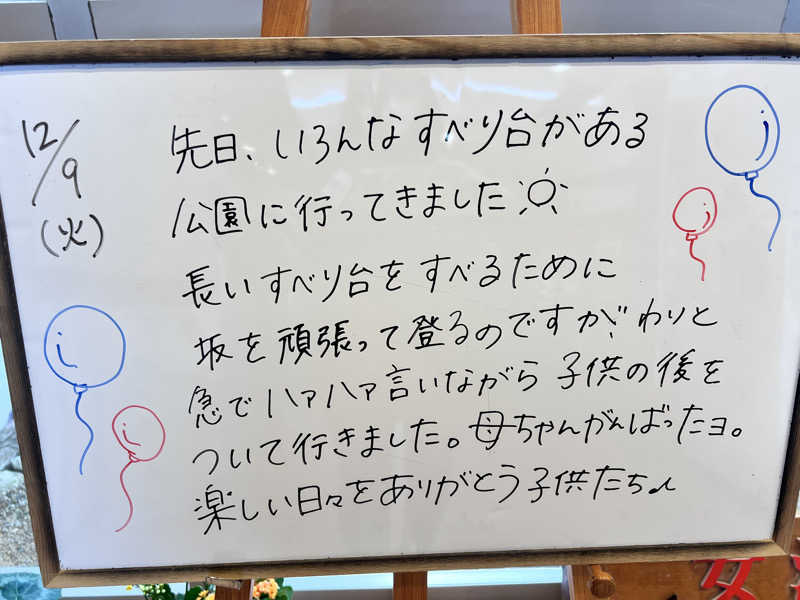 12/9
(火)
先日、いろんなすべり台がある
公園に行ってきました
長いすべり台をすべるために
坂を頑張って登るのですが、わりと
急でハァハァ言いながら子供の後を
ついて行きました。母ちゃんがんばったヨ。
楽しい日々をありがとう子供たち